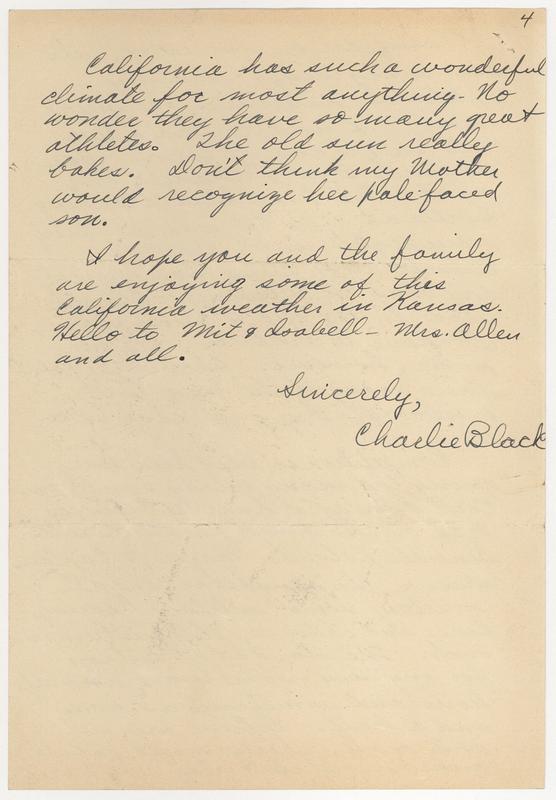 4
California has such a wonderful
climate for most anything - No
wonder they have so many great
athletes. The old sun really
bakes. Don't think my Mother
would recognize her pale faced
son.
I hope you and the family
are enjoying some of this
California weather in Kansas.
Hello to Mit & Isabell - Mrs. Allen
and all.
Sincerely,
Charlie Black